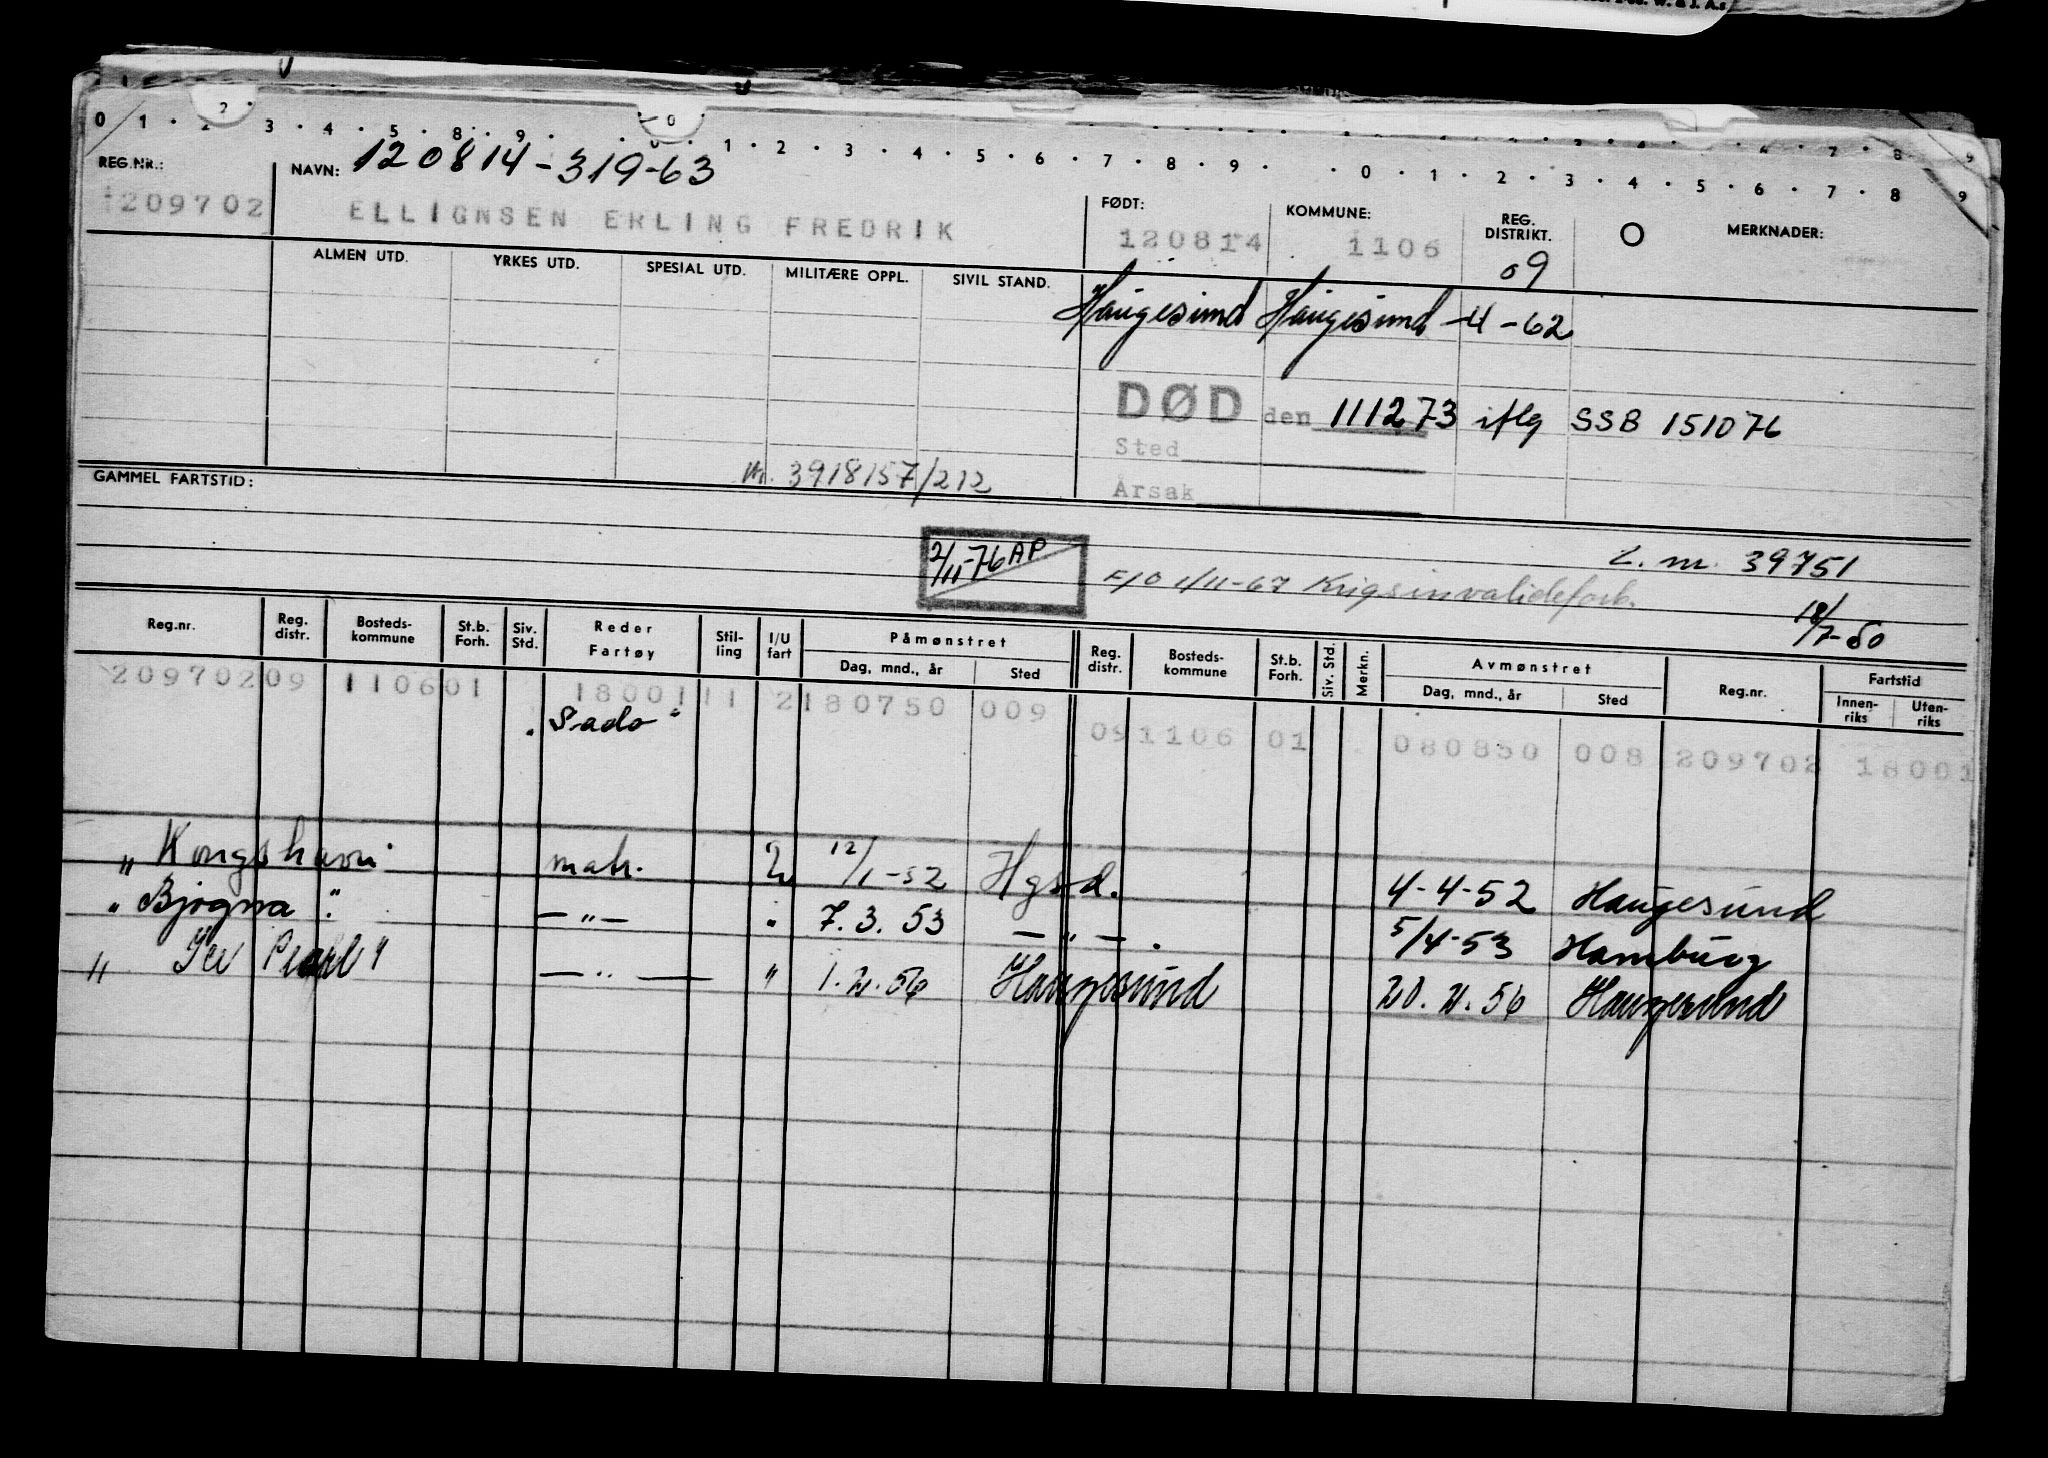 0 1 2 3 4 5 8 9 0 1 2 3 4 5 6 7 8 9 0 1 2 3 4 5 6 7 8 9
REG.NR.: NAVN: 120814-319-63
209702 ELLIGNSEN ERLING FREDRIK FØDT: 120814 KOMMUNE: 1106 REG. DISTRIKT. 09 MERKNADER:
ALMEN UTD. YRKES UTD. SPESIAL UTD. MILITÆRE OPPL. SIVIL STAND.
Haugesund Haugesund -4-62
DØD den 111273 iflg SSB 151076
Sted
Årsak
GAMMEL FARTSTID: 3918157/212
2/11-76 AP
F/O 1/11-67 Krigsinvalideforb.
L.m. 39751
18/7-50
Reg.nr. Reg. distr. Bosteds-kommune St.b. Forh. Siv. Std. Reder Fartøy Stil-ling I/U fart Påmønstret Dag, mnd., år Sted Reg. distr. Bosteds-kommune St.b. Forh. Siv. Std. Merkn. Avmønstret Dag, mnd., år Sted Reg.nr. Fartstid Innen-riks Uten-riks
209702 09 1106 01 18001 11 2 180750 009
"Sado"
09 1106 01 080850 008 209702 18001
"Kongshavn" matr. U 12/1-52 Hgsd. 4-4-52 Haugesund
"Bjogna" -"- " 7.3.53 -"-. 5/4-53 Hamburg
"Ice Pearl" -"- " 1.2.56 Haugesund 20.2.56 Haugesund